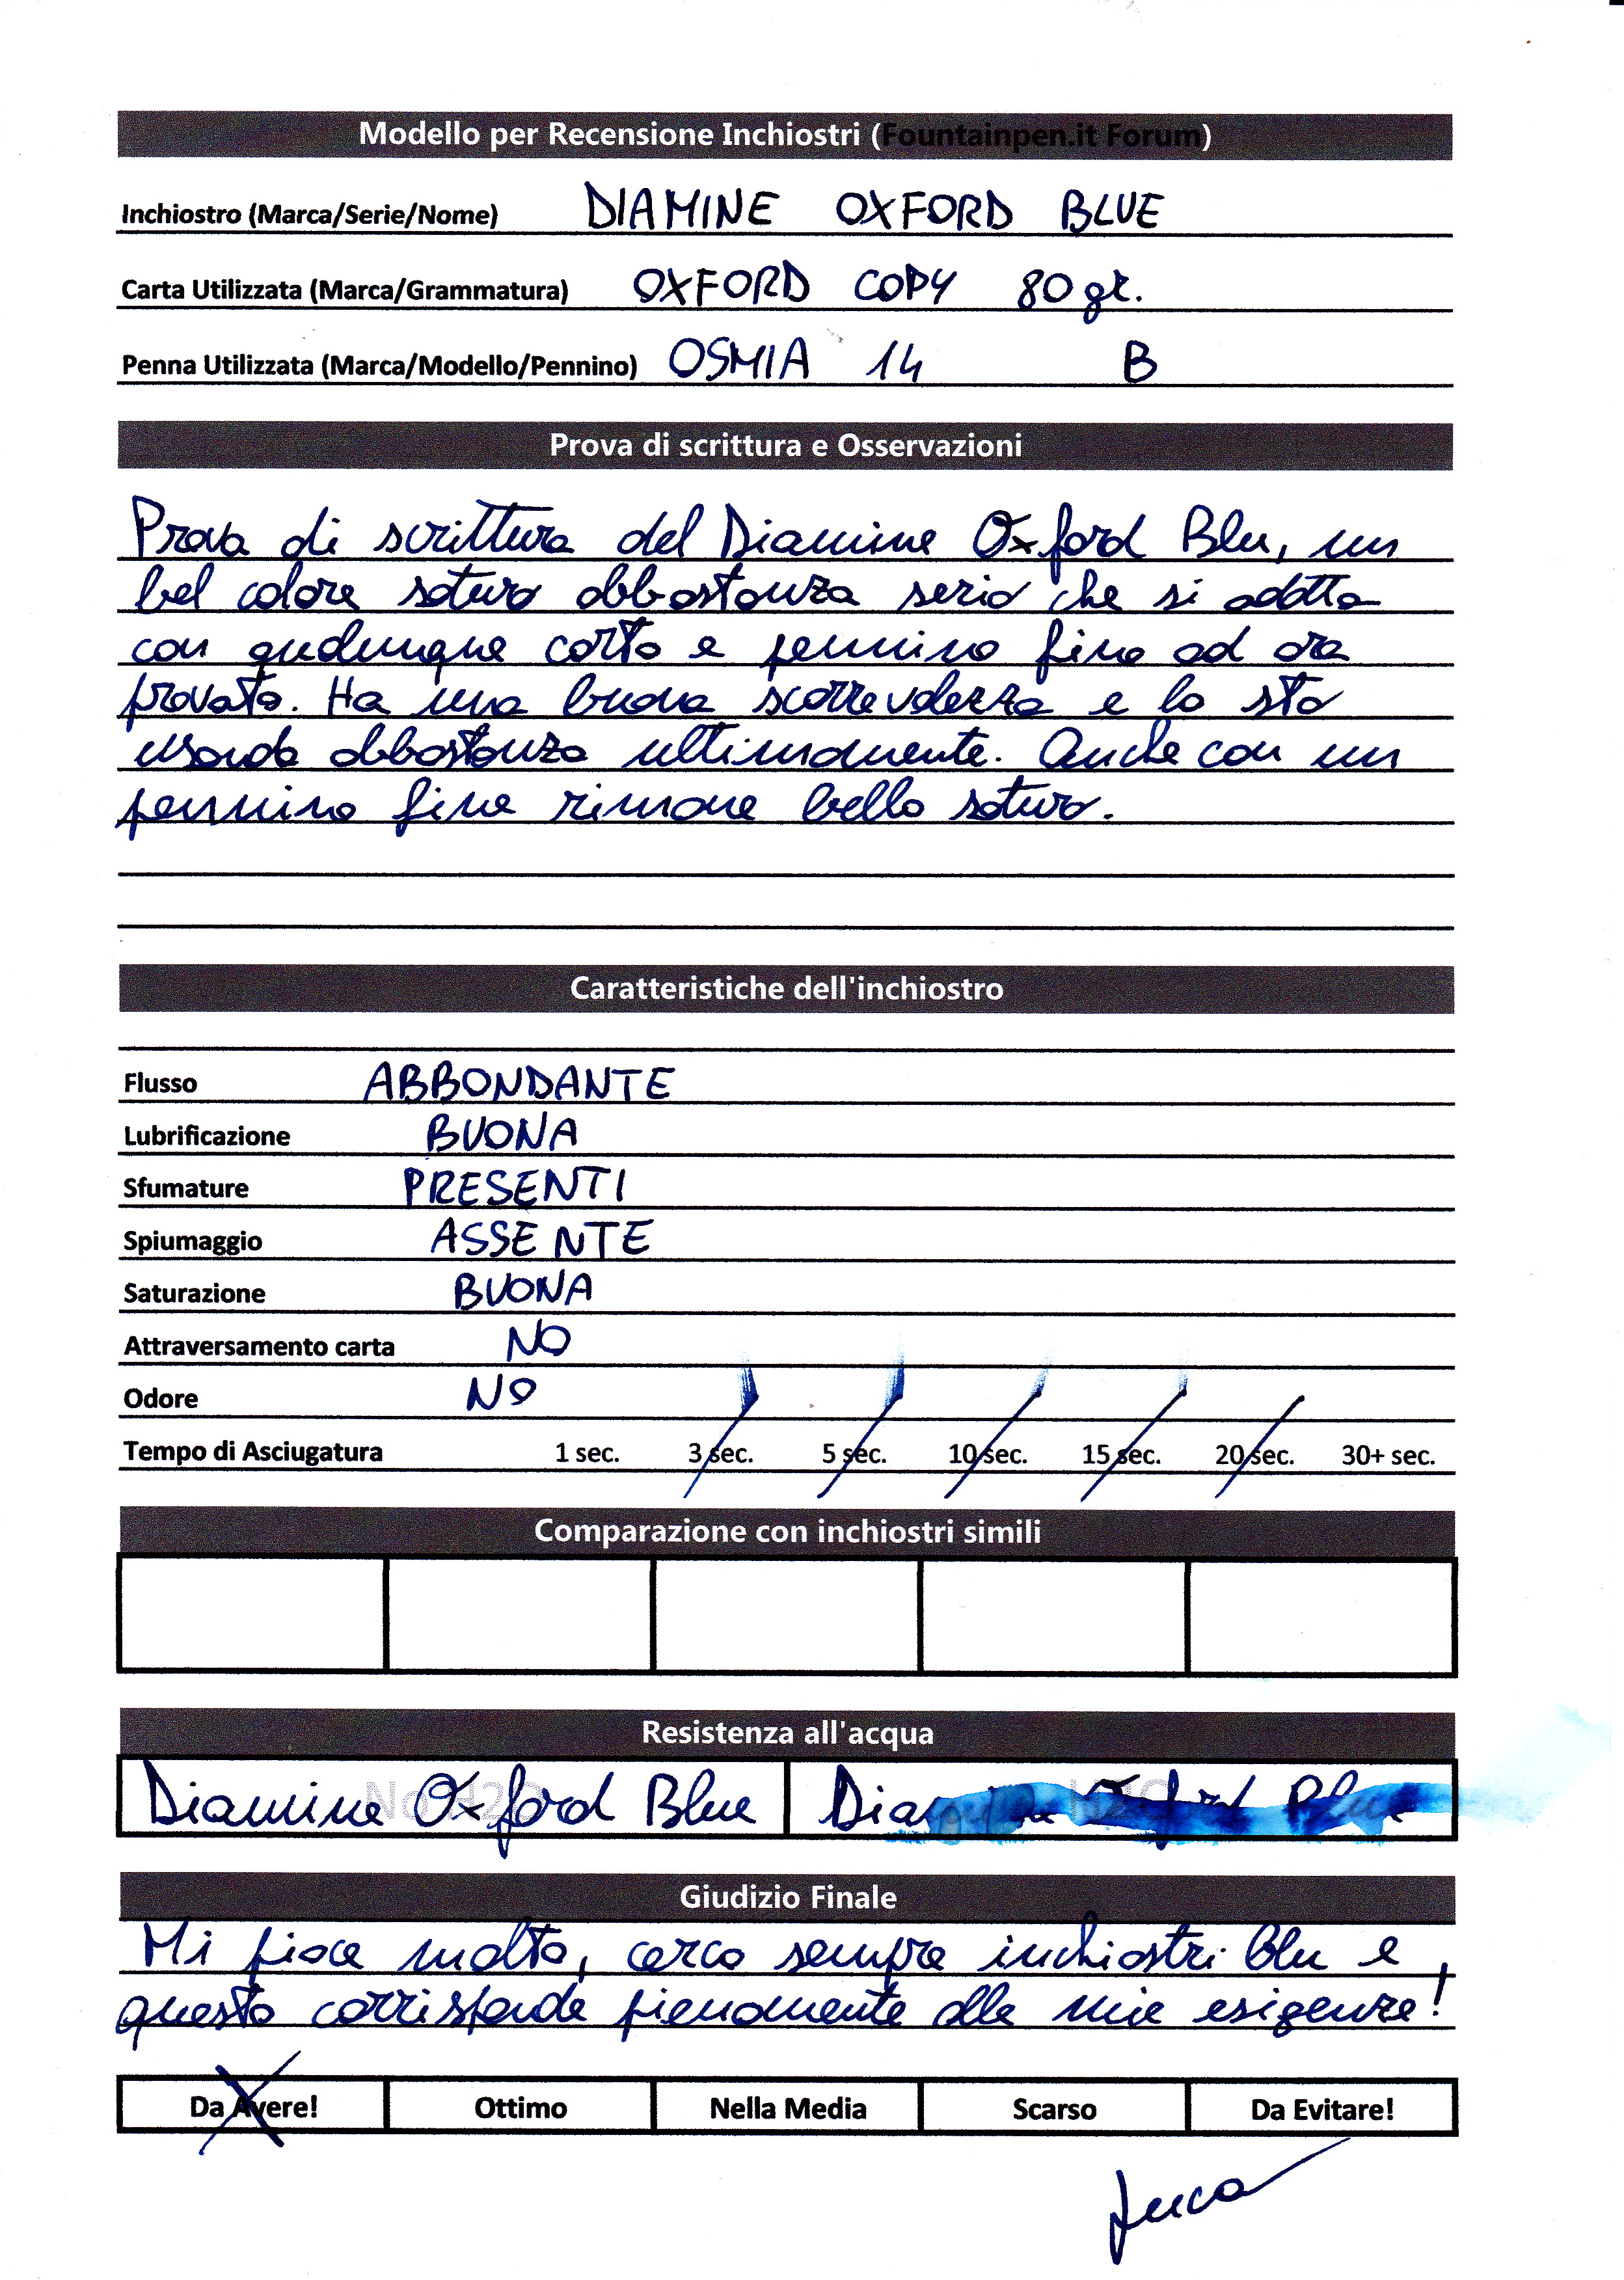 Modello per Recensione Inchiostri (Fountainpen.it Forum)
Inchiostro (Marca/Serie/Nome) DIAMINE OXFORD BLUE
Carta Utilizzata (Marca/Grammatura) OXFORD COPY 80 gr.
Penna Utilizzata (Marca/Modello/Pennino) OSMIA 14 B
Prova di scrittura e Osservazioni
Prova di scrittura del Diamine Oxford Blu, un
bel colore saturo abbastanza serio che si adatta
con qualunque carta e pennino fino ad ora
provato. Ha una buona scorrevolezza e lo sto
usando abbastanza ultimamente. Anche con un
pennino fine rimane bello saturo.
Caratteristiche dell'inchiostro
Flusso ABBONDANTE
Lubrificazione BUONA
Sfumature PRESENTI
Spiumaggio ASSENTE
Saturazione BUONA
Attraversamento carta NO
Odore NO
Tempo di Asciugatura 1 sec. 3 sec. 5 sec. 10 sec. 15 sec. 20 sec. 30+ sec.
Comparazione con inchiostri simili
Resistenza all'acqua
No H2O H2O
Diamine Oxford Blue Diamine Oxford Blue
Giudizio Finale
Mi piace molto, cerco sempre inchiostri blu e
questo corrisponde pienamente alle mie esigenze!
Da Avere! Ottimo Nella Media Scarso Da Evitare!
Luca